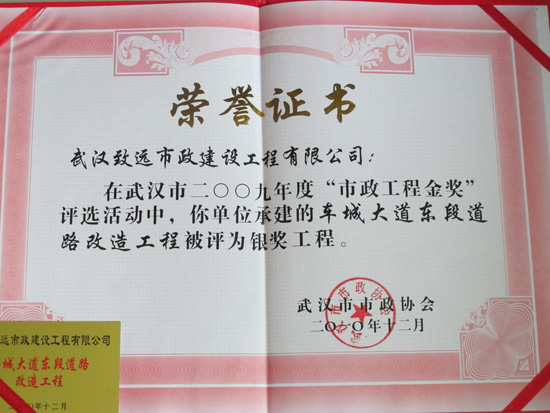 荣誉证书
武汉致远市政建设工程有限公司：
在武汉市二〇〇九年度“市政工程金奖”
评选活动中，你单位承建的车城大道东段道
路改造工程被评为银奖工程。
武汉市市政协会
二〇一〇年十二月
武汉市市政协会
远市政建设工程有限公司
城大道东段道路
改造工程